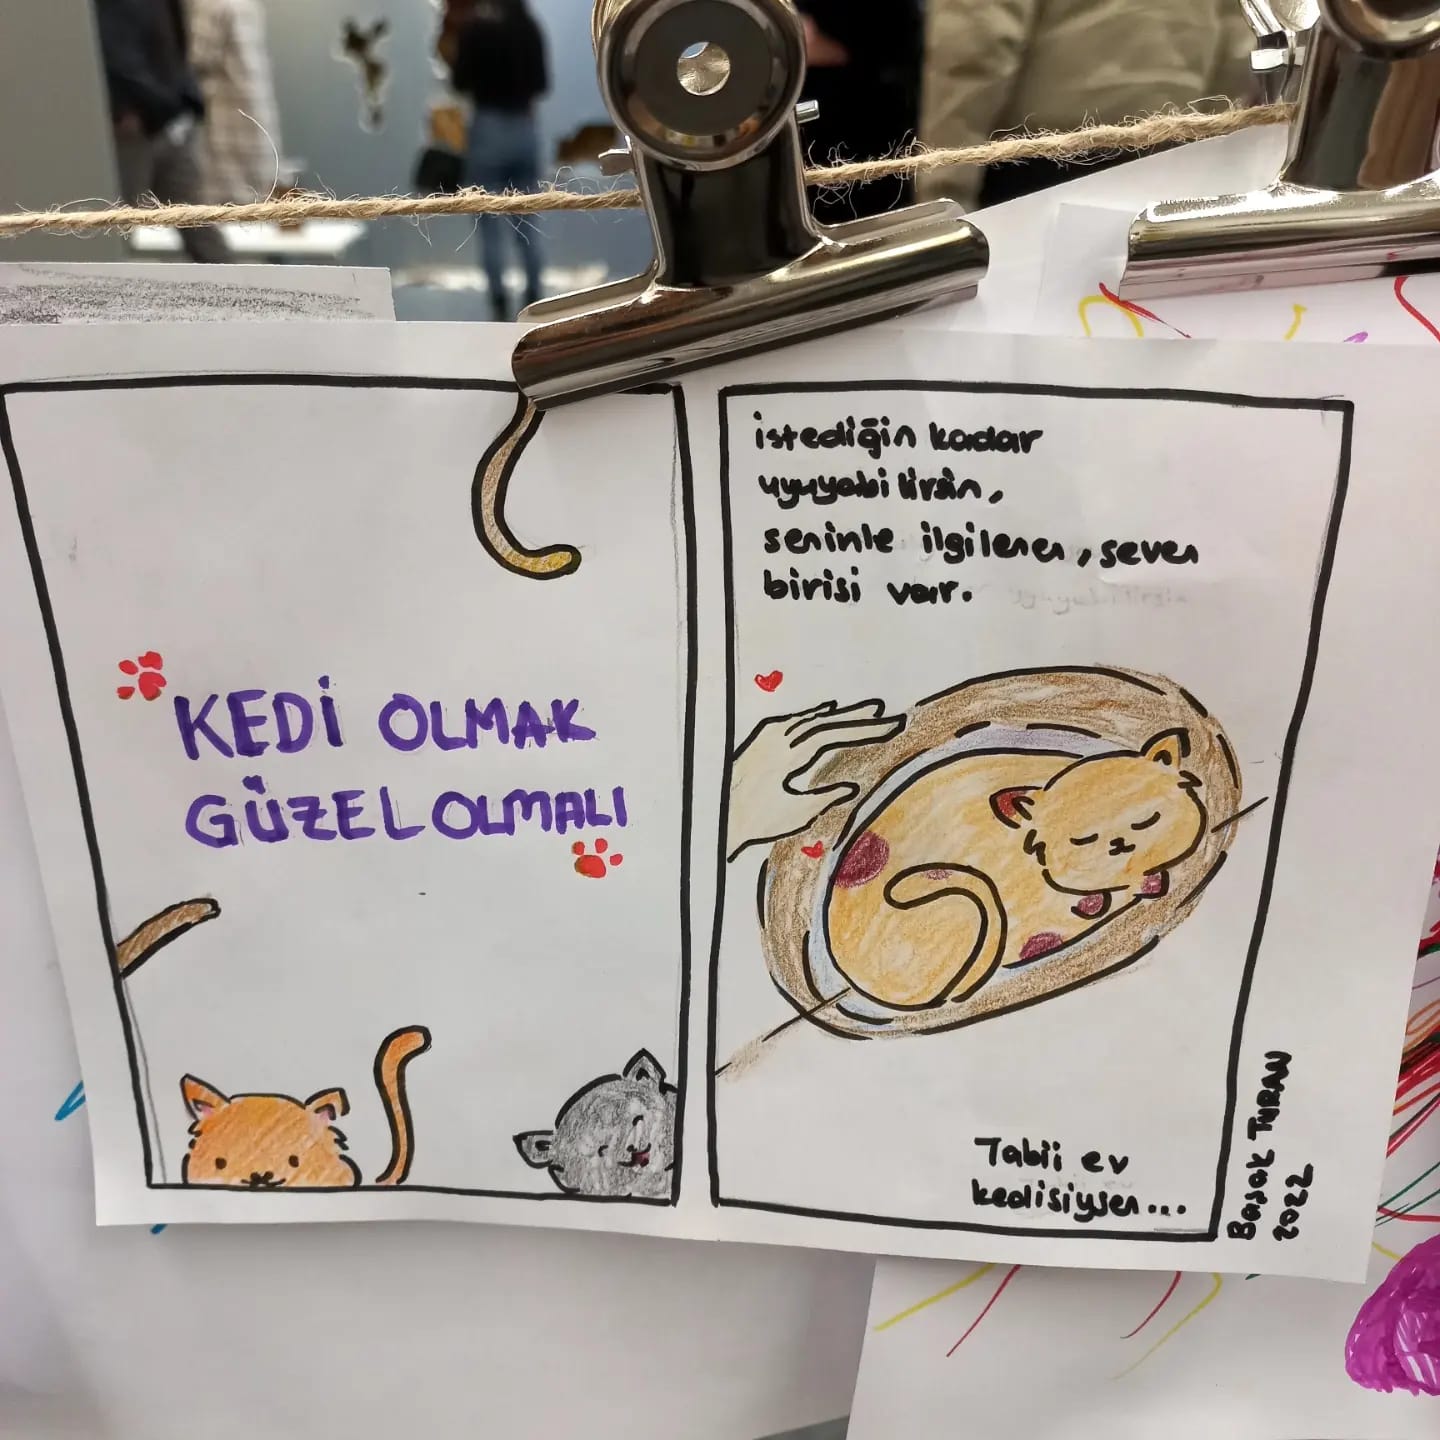 KEDİ OLMAK
GÜZEL OLMALI
istediğin kadar
uyuyabilirsin,
seninle ilgilenen, seven
birisi var.
Tabii ev
kedisiysen...
Başak TURAN
2022